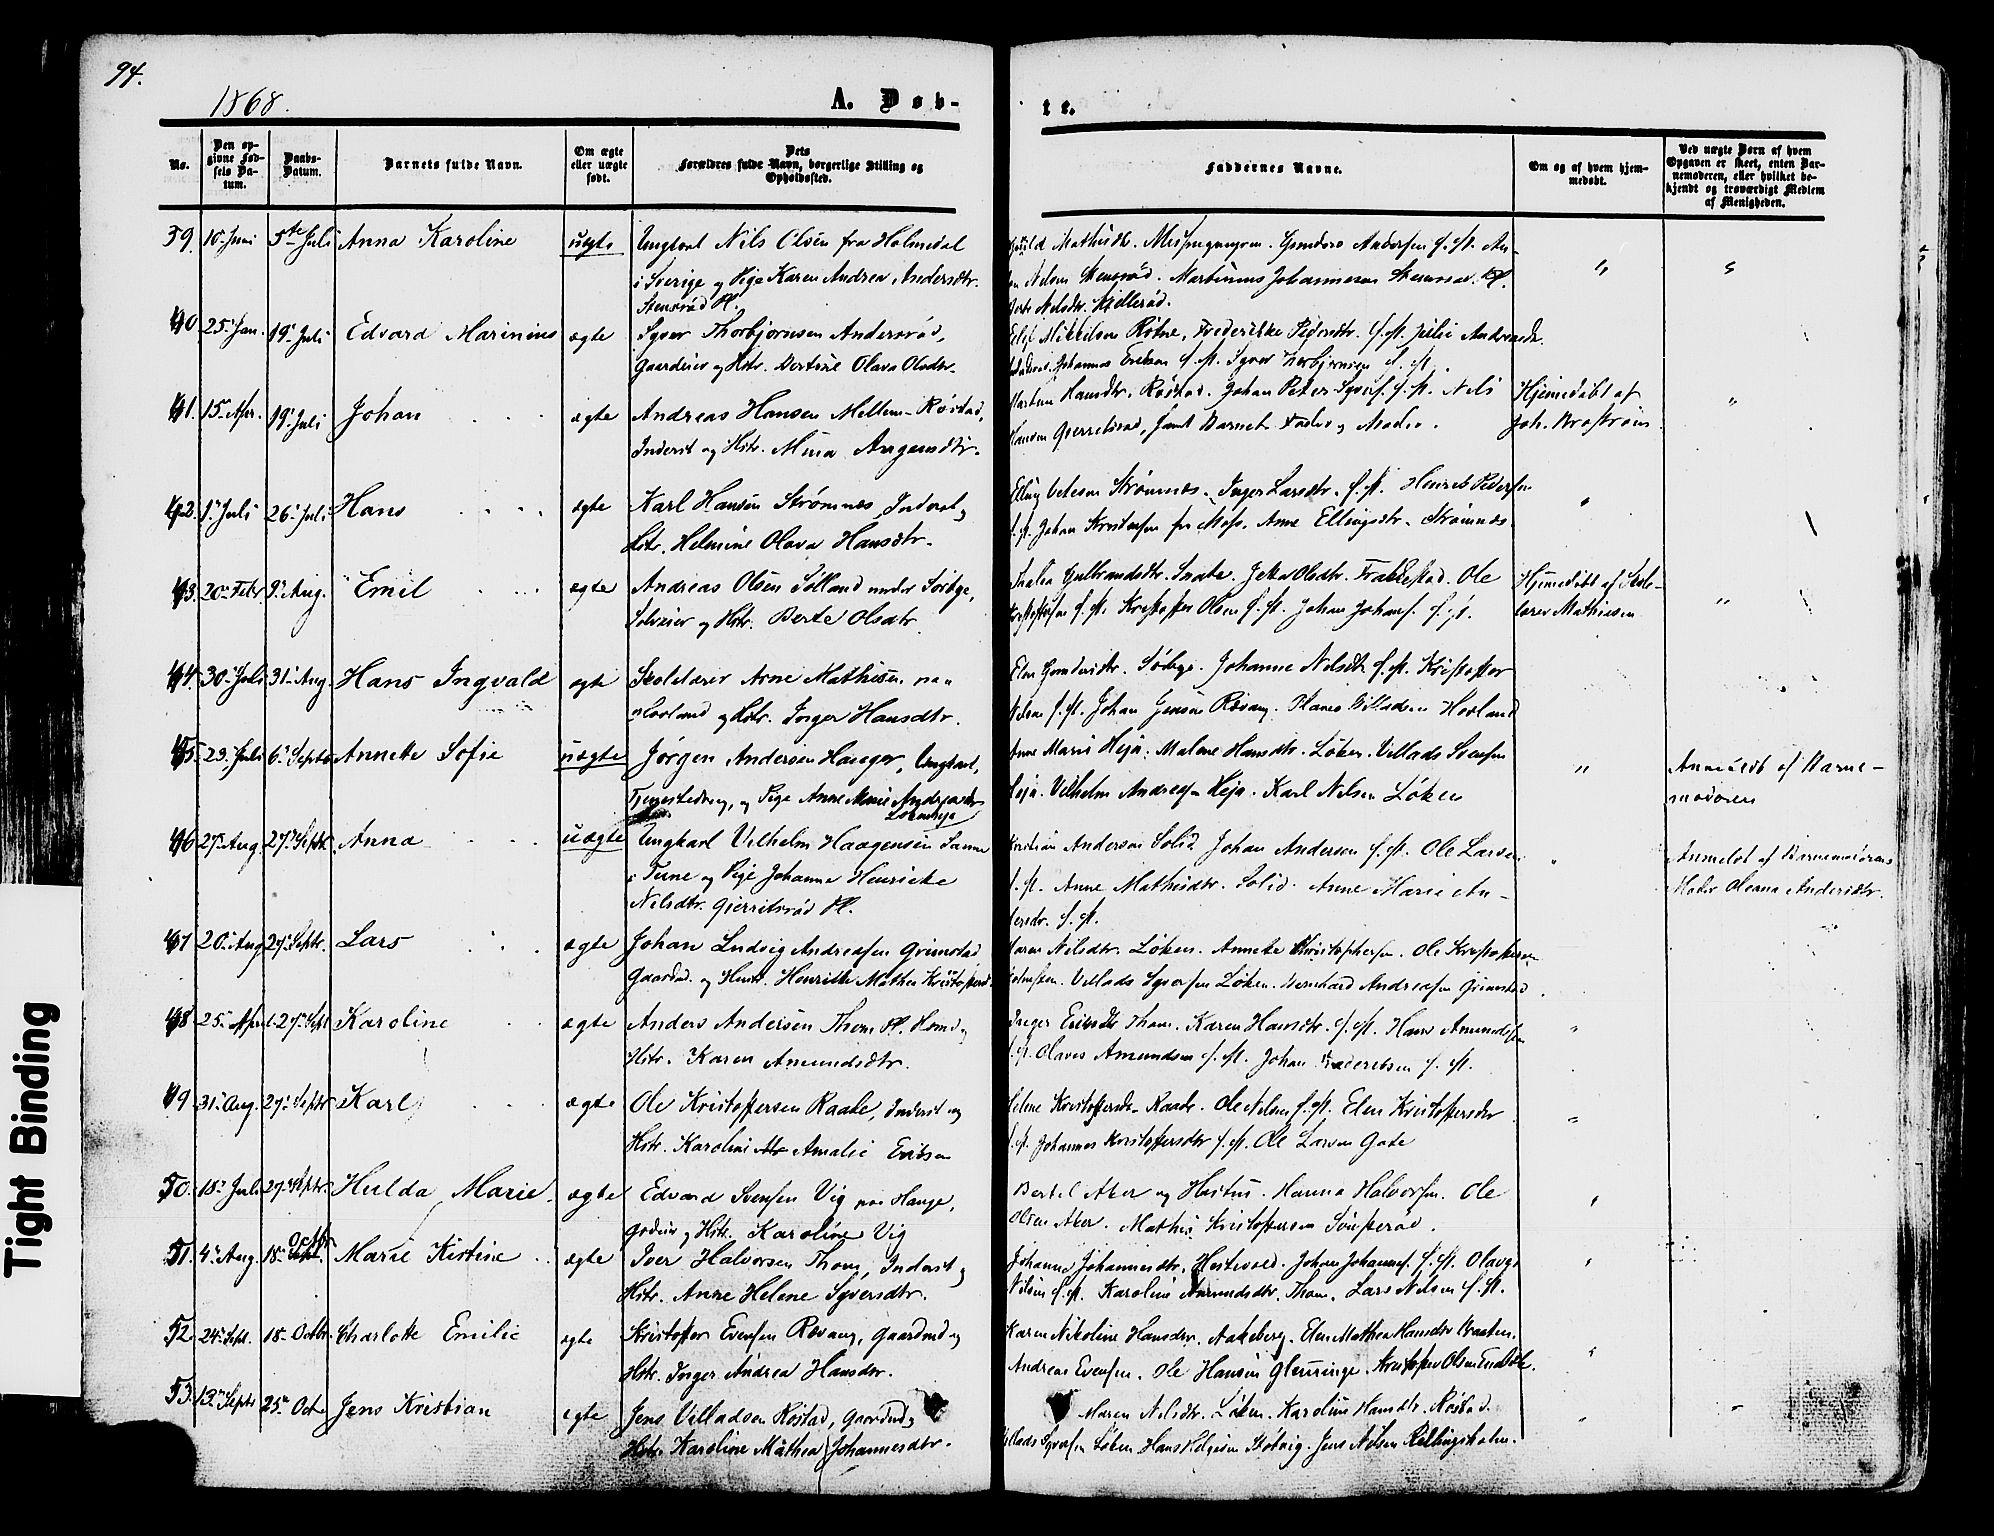 94.
1868.
A. Døb-
te.
No.
Den op-
givne Fød-
sels Da-
tum.
Daabs-
Datum.
Barnets fulde Navn.
Om ægte
eller uægte
født.
Dets
Forældres fulde Navn, borgerlige Stilling og
Opholdssted.
Faddernes Navne.
Om og af hvem hjem-
medøbt.
Ved uægte Børn af hvem
Opgaven er skeet, enten Bar-
nemoderen, eller hvilket be-
kjendt og troværdigt Medlem
af Menigheden.
39. 10. Juni 5te Juli Anna Karoline uægte Ungkarl Nils Olsen fra Holmedal
i Sverige og Pige Karen Andrea Andersdtr.
Stensrød Pl.
Nelsen Stensrød. Martinius Johannesen Stensrød Pl.
Nelsdtr. Killerød.
40. 25. Jan. 19. Juli Edvard Marinius ægte Syver Thorbjørnsen Andersrød,
Gaardeier og Hstr. Bertine Olava Olsdtr.
Mikkelsen Røsne, Frederikke Pedersdtr. s. st. Julie Andersdtr.
Johannes Eriksen s. st. Syver Thorbjørnsen s. st.
41. 15. Apr. 19. Juli Johan ægte Andreas Hansen Mellem-Røstad,
Inderst og Hstr. Mina Jørgensdtr.
Hansdtr. Røstad. Johan Peter Syvers. s. st. Nils
Hansen Gjerretsrød, samt Barnets Fader og Moder.
Hjemmedøbt af
Joh. Brostrøm
42. 1. Juli 26. Juli Hans ægte Karl Hansen Strømnes, Inderst og
Hstr. Helmine Olava Hansdtr.
Elling Olesen Strømnes. Inger Larsdtr. s. st. Henrik Pedersen
s. st. Johan Kristensen fra Moss. Anne Ellingsdtr. Strømnes.
43. 20. Febr. 9. Aug. Emil ægte Andreas Olsen Sølland under Sørbye,
Selveier og Hstr. Berte Olsdtr.
Thalea Gulbrandsdtr. Snarte. Jette Olsdtr. Frakkestad. Ole
Kristoffersen s. st. Kristoffer Olsen s. st. Johan Johans. s. st.
Hjemmedøbt af Skole-
lærer Mathiesen
44. 30. Juli 31. Aug. Hans Ingvald ægte Skolelærer Arne Mathisen paa
Hovland og Hstr. Inger Hansdtr.
Elen Gundersdtr. Sørbye. Johanne Nelsdtr. s. st. Kristoffer
Nelsen s. st. Johan Jensen Røvaug. Hans Villadsen Hovland
45. 23. Juli 6. Septr. Annette Sofie uægte Jørgen Andersen Hauger, Ungkarl,
og Pige Anne Marie Andreasdtr.
Løkenheja
Anne Marie Heja. Malene Hansdtr. Løken. Villads Svensen
Heja. Vilhelm Andreasen Heja. Karl Nelsen Løken
Anmeldt af Barne-
moderen
46. 27. Aug. 27. Septr. Anna uægte Ungkarl Vilhelm Haagensen Sanne
i Tune og Pige Johanne Henrieke
Nelsdtr. Gjerretsrød Pl.
Kristian Andersen Solid Johan Andersen s. st. Ole Larsen
s. st. Anne Mathisdtr. Solid. Anne Marie An-
dersdr. s. st.
Anmeldt af Barnemoderens
Moder Olerna Andersdtr.
47. 20. Aug. 27. Septr. Lars ægte Johan Ludvig Andreasen Grimstad
Gaardbr. og Hustr. Henriette Mathea Kristoffersd.
Maren Nilsdtr. Løken. Annette Christophersen. Ole Kristoffersen
Holmsten. Villads Syversen Løken. Bernhard Andreasen Grimstad
48. 25. April 27. Septr. Karoline ægte Anders Andersen Thom Pl. Hmd. og
Hstr. Karen Amundsdtr.
Inger Eriksdtr. Thom. Karen Hansdtr. s. st. Hans Amundsen
s. st. Olaves Amundsen s. st. Johan Frederiksen s. st.
49. 31. Aug. 27. Septr. Karl ægte Ole Kristoffersen Raade, Inderst og
Hstr. Karoline Amalie Eriksen
Helene Kristoffersdr. Raade. Ole Nelsen s. st. Elen Kristoffersdr.
s. st. Johannes Kristoffersdtr s. st. Ole Larsen Gate
50. 18. Juli 27. Septr. Hulda Marie ægte Edvard Svensen Vig paa Hauge,
Godeier og Hstr. Karoline Vig
Bertel Aker og Hustru. Hanna Halvorsen. Ole
Olsen Aker. Mathis Kristoffersen
51. 4. Aug. 18. Octbr. Marie Kirstine ægte Iver Halvorsen Thom, Inderst og
Hstr. Anne Helene Syversdtr.
Johanne Johannesdtr. Hestevold. Johan Johannes. s. st. Olava
Nilsen s. st. Karoline Amundsdtr. Thom. Lars Nelsen s. st.
52. 24. Sept. 18. Octbr. Charlotte Emilie ægte Kristoffer Evensen Røvaug, Gaardmd. og
Hstr. Inger Andrea Hansdtr.
Karen Nikoline Hansdtr. Aakeberg. Elen Mathea Hansdtr. Braaten.
Andreas Evensen. Ole Hansen Glenringe. Kristoffer Olsen
53. 13. Septr. 25. Octr. Jens Kristian ægte Jens Villadsen Røstad, Gaardmd. og
Hstr. Karoline Mathea Johannesdtr.
Maren Nelsdtr. Løken. Karoline Hansdtr. Røstad.
Villads Syversen Løken. Hans Helgesen Støtvig. Jens Nelsen Rillingsholm.
Tight Binding